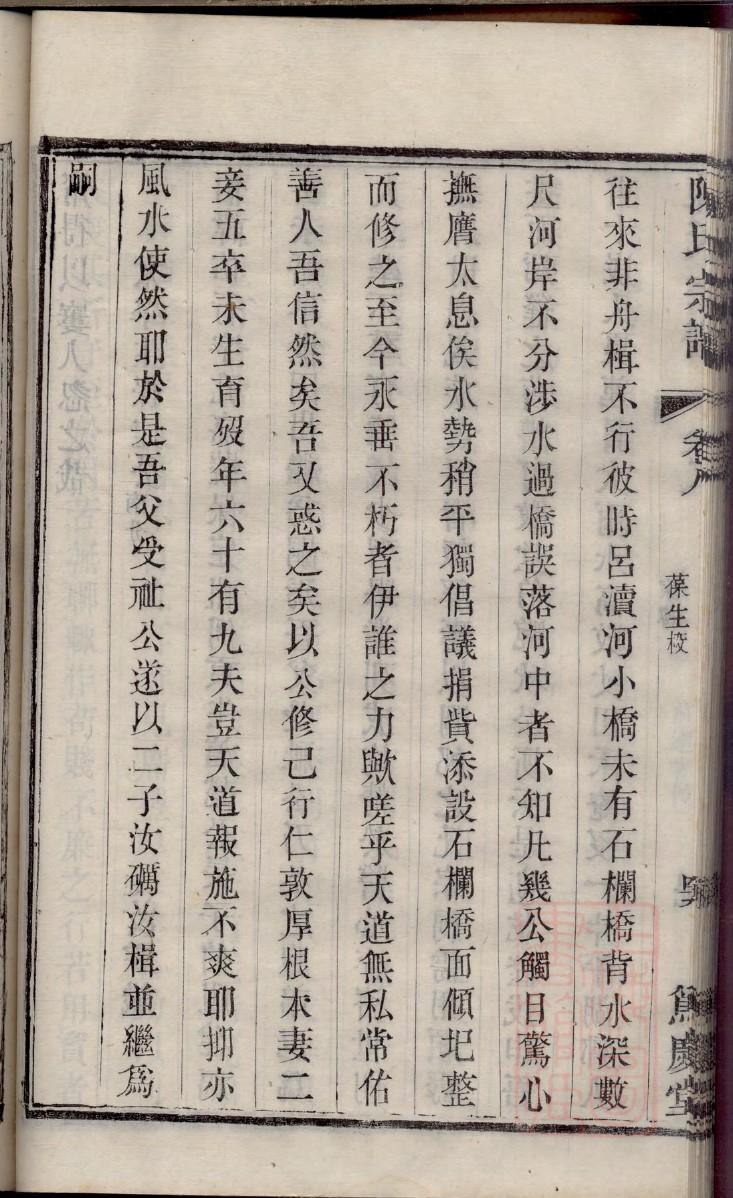 陳氏宗譜
卷八
葆生校
篤慶堂
往來非舟楫不行彼時呂瀆河小橋未有石欄橋背水深數
尺河岸不分涉水過橋誤落河中者不知凡幾公觸目驚心
撫膺太息俟水勢稍平獨倡議捐貲添設石欄橋面傾圯整
而修之至今永垂不朽者伊誰之力歟嗟乎天道無私常佑
善人吾信然矣吾又惑之矣以公修己行仁敦厚根本妻二
妾五卒未生育歿年六十有九夫豈天道報施不爽耶抑亦
風水使然耶於是吾父受祉公遂以二子汝礪汝楫並繼爲
嗣